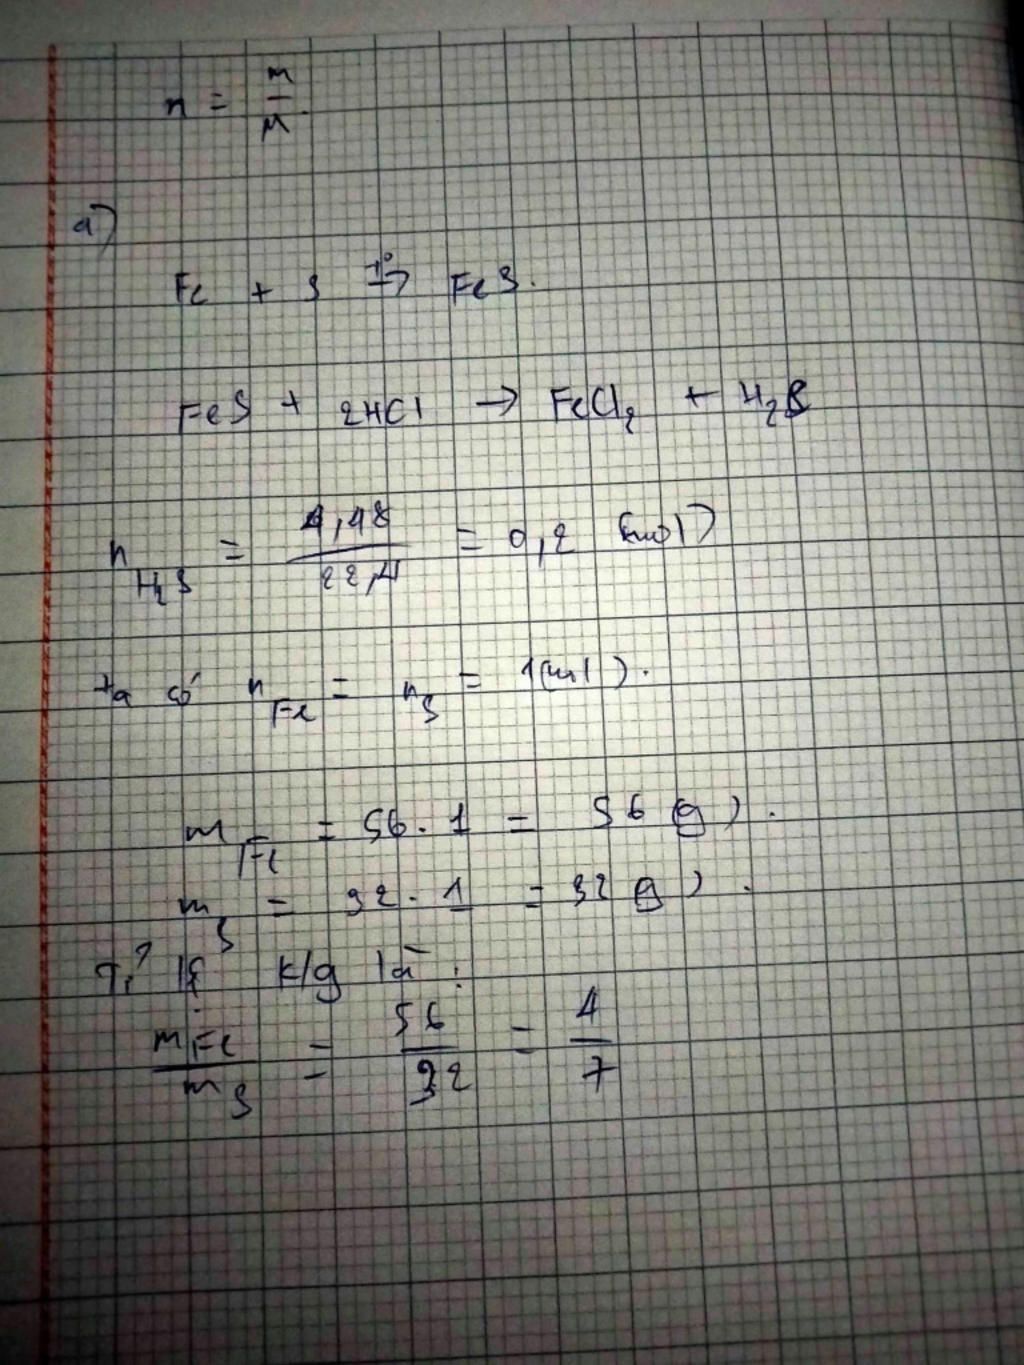 n = m/M.
a)
Fe + S t°→ FeS.
FeS + 2HCl → FeCl₂ + H₂S
n H₂S = 4,48/22,4 = 0,2 (mol)
ta có n Fe = n S = 1(mol).
m Fe = 56. 1 = 56 (g).
m S = 32. 1 = 32 (g).
Tỉ lệ k/g là :
m Fe/m S = 56/32 = 4/7